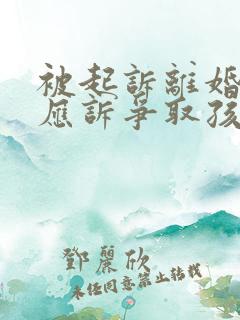 被起訴離婚
應訴爭取孩
鄧麗欣
未經同意禁止轉載